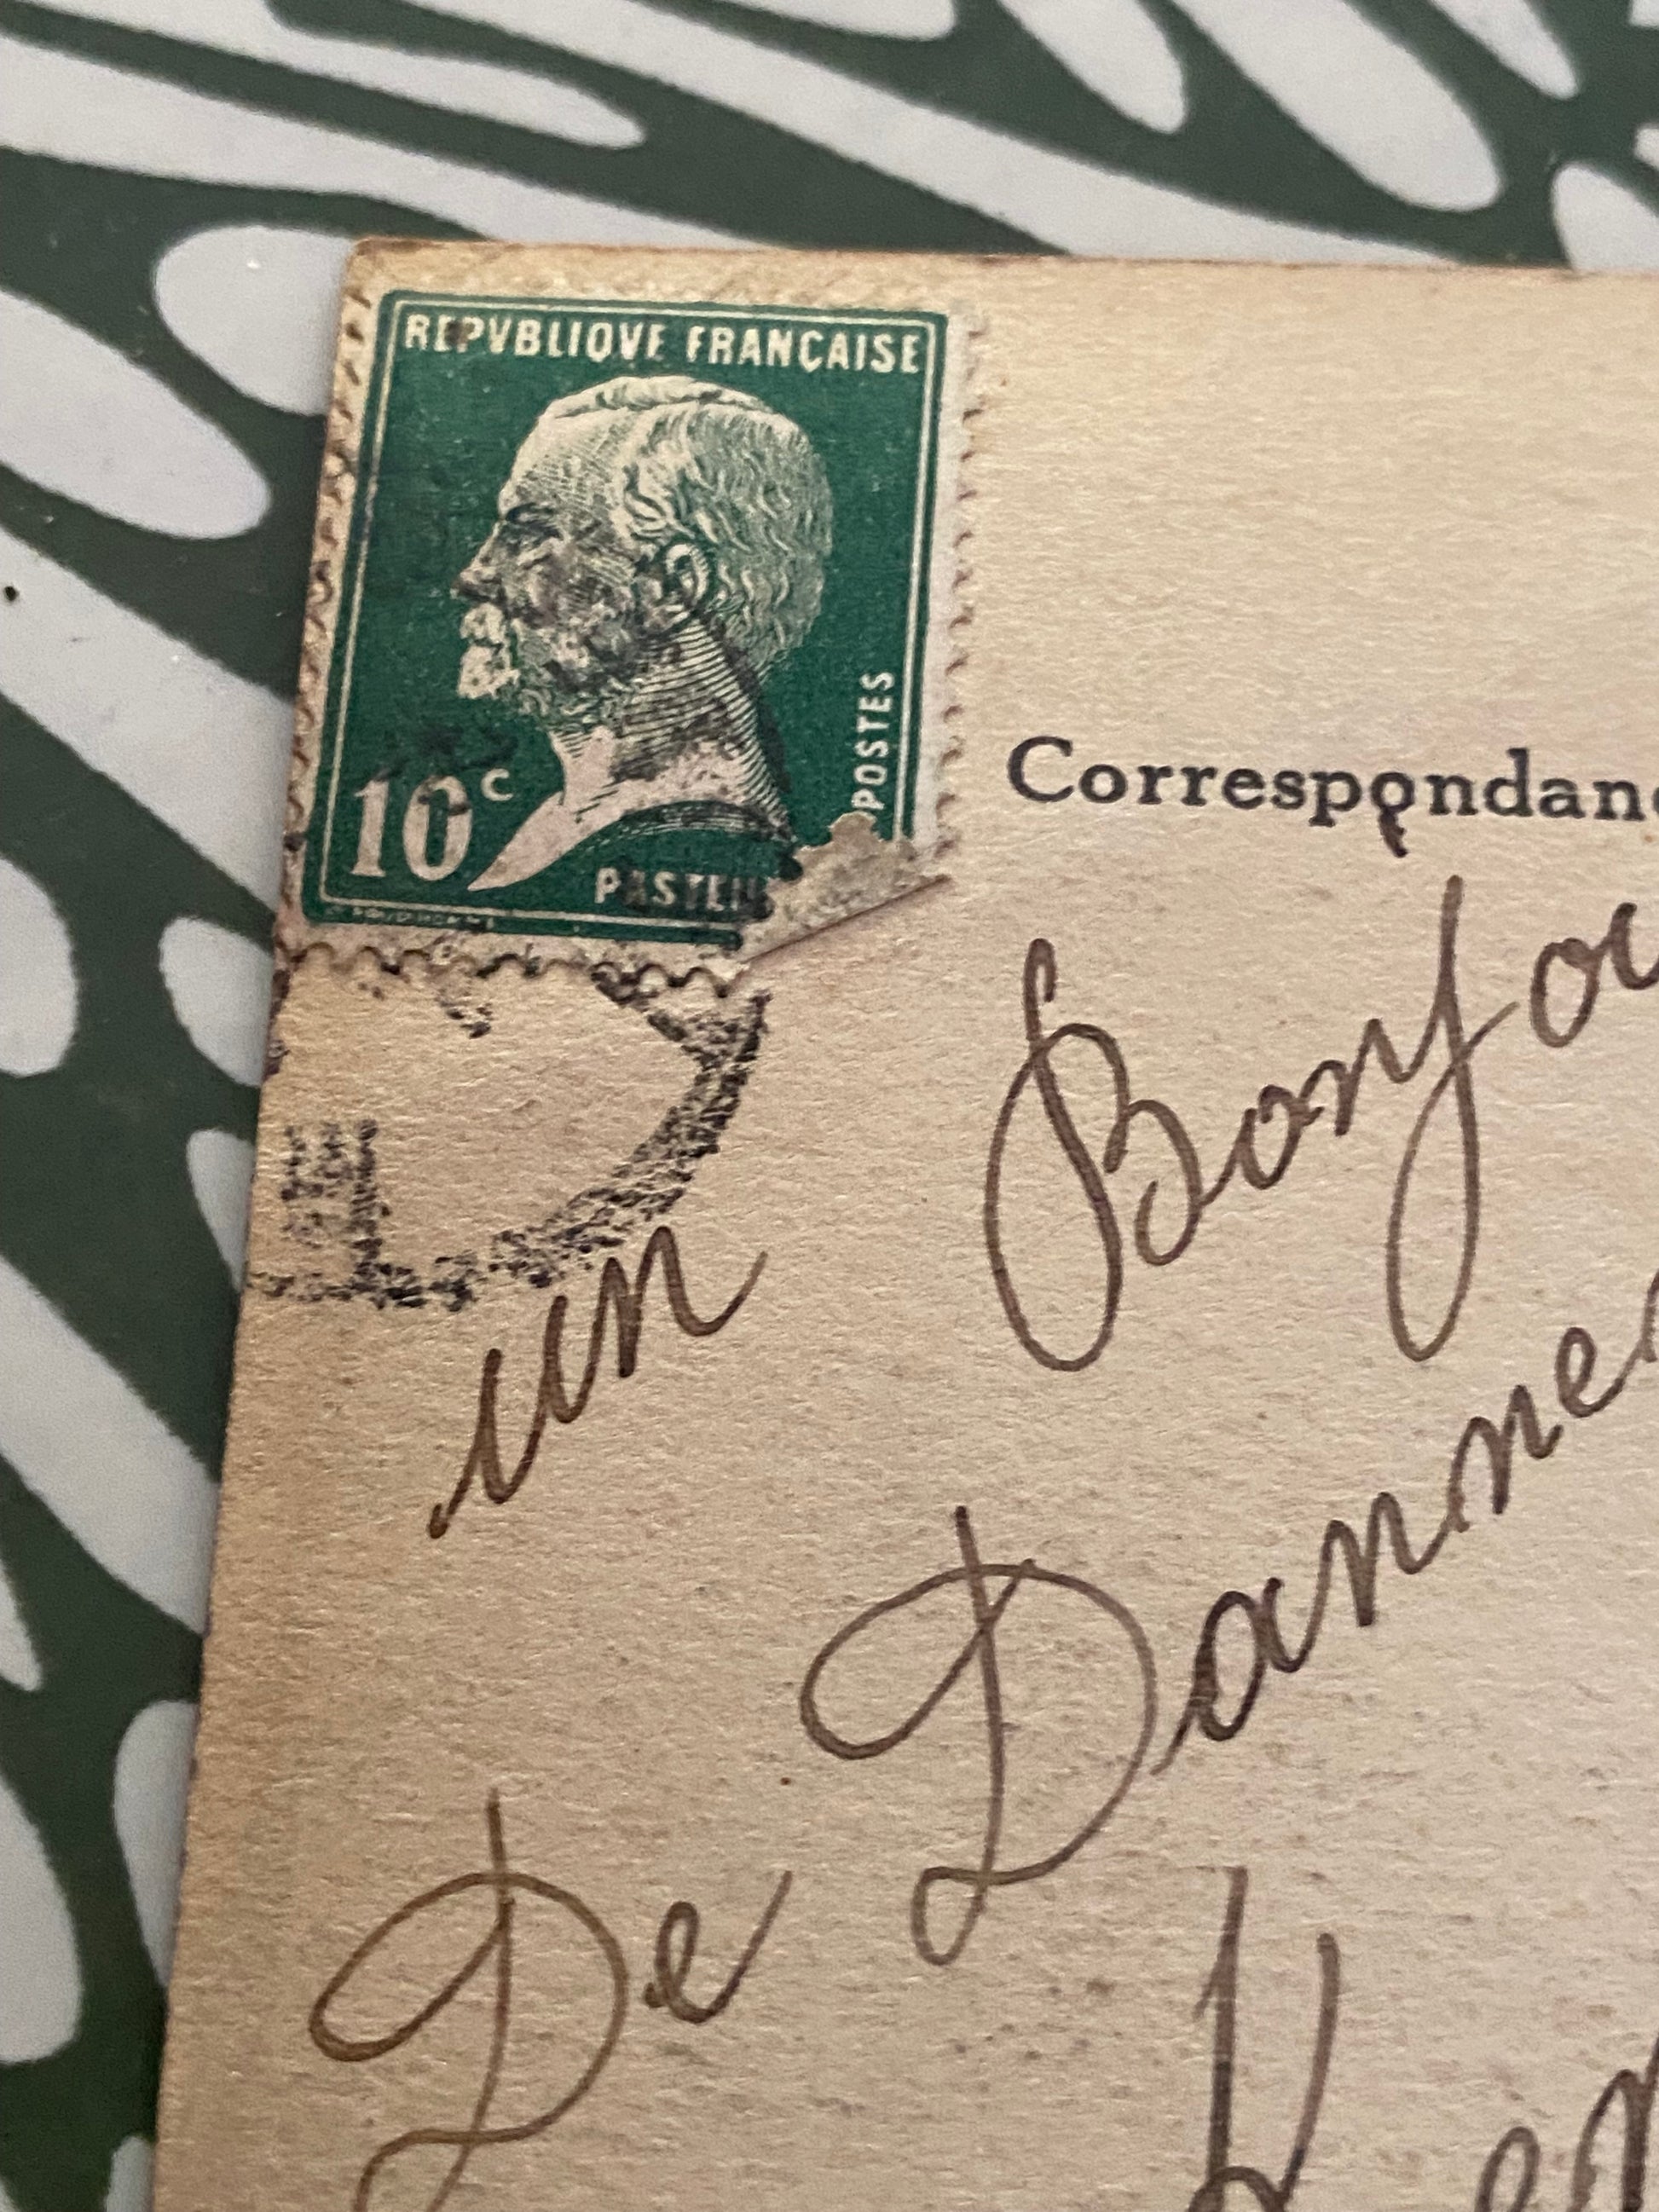 REPVBLIQVE FRANÇAISE
POSTES
10c
PASTEUR
Correspondanc
un Bonjou
De Danne
De